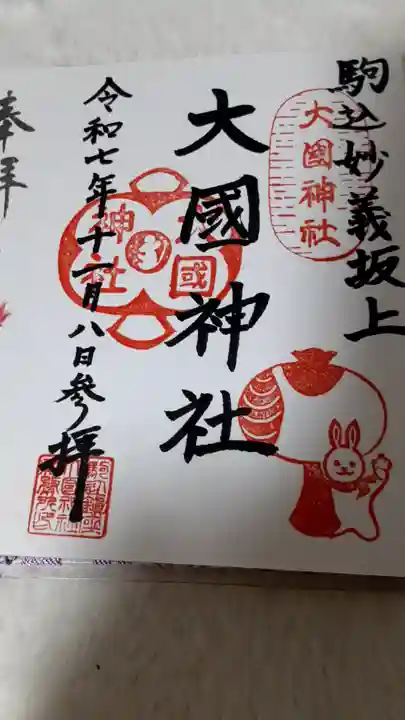 駒込妙義坂上
大國神社
大國神社
大國神社
令和七年十一月八日参拝
奉拝